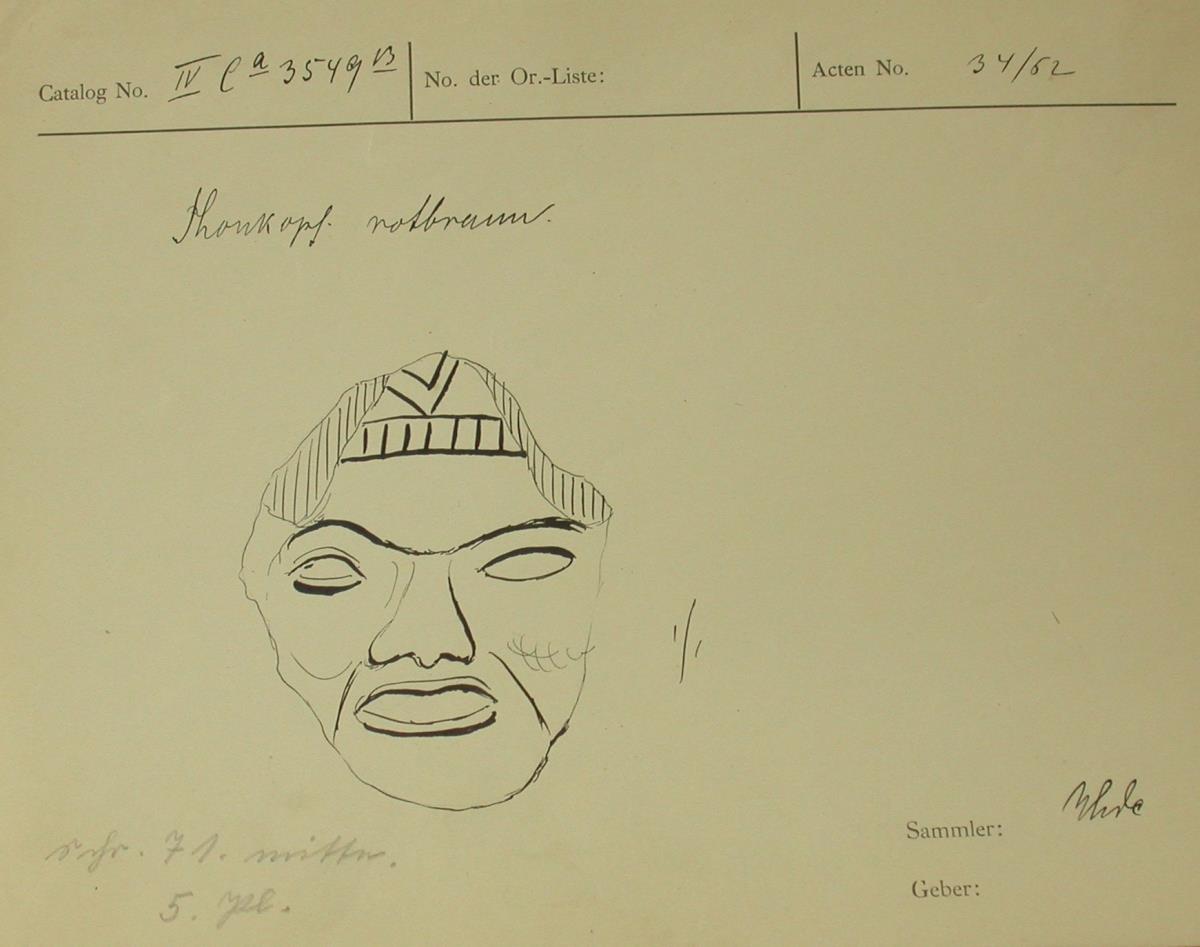 Catalog No. IV Ca 3549 B
No. der Or.-Liste:
Acten No. 34/62
Thonkopf. rotbraun.
1/1
Sammler: Uhde
Geber:
schr. 71. mitte.
5.